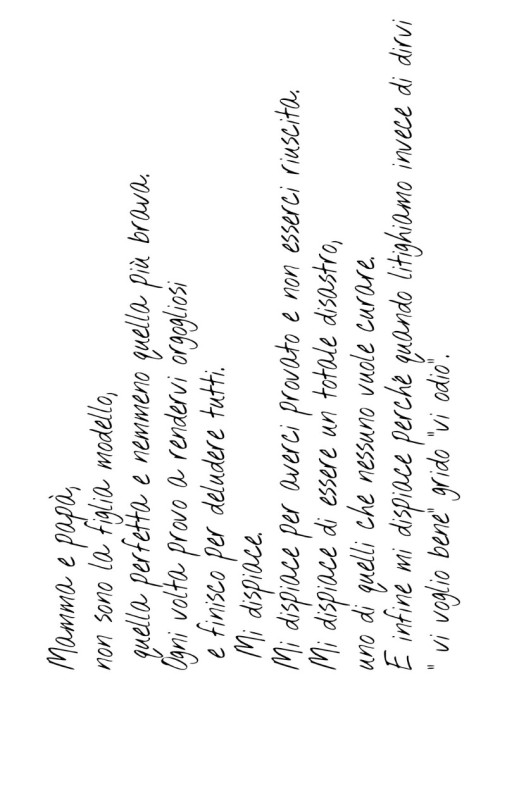 Mamma e papà,
non sono la figlia modello,
quella perfetta e nemmeno quella più brava.
Ogni volta provo a rendervi orgogliosi
e finisco per deludere tutti.
Mi dispiace.
Mi dispiace per averci provato e non esserci riuscita.
Mi dispiace di essere un totale disastro,
uno di quelli che nessuno vuole curare.
E infine mi dispiace perché quando litighiamo invece di dirvi
"vi voglio bene" grido "vi odio".